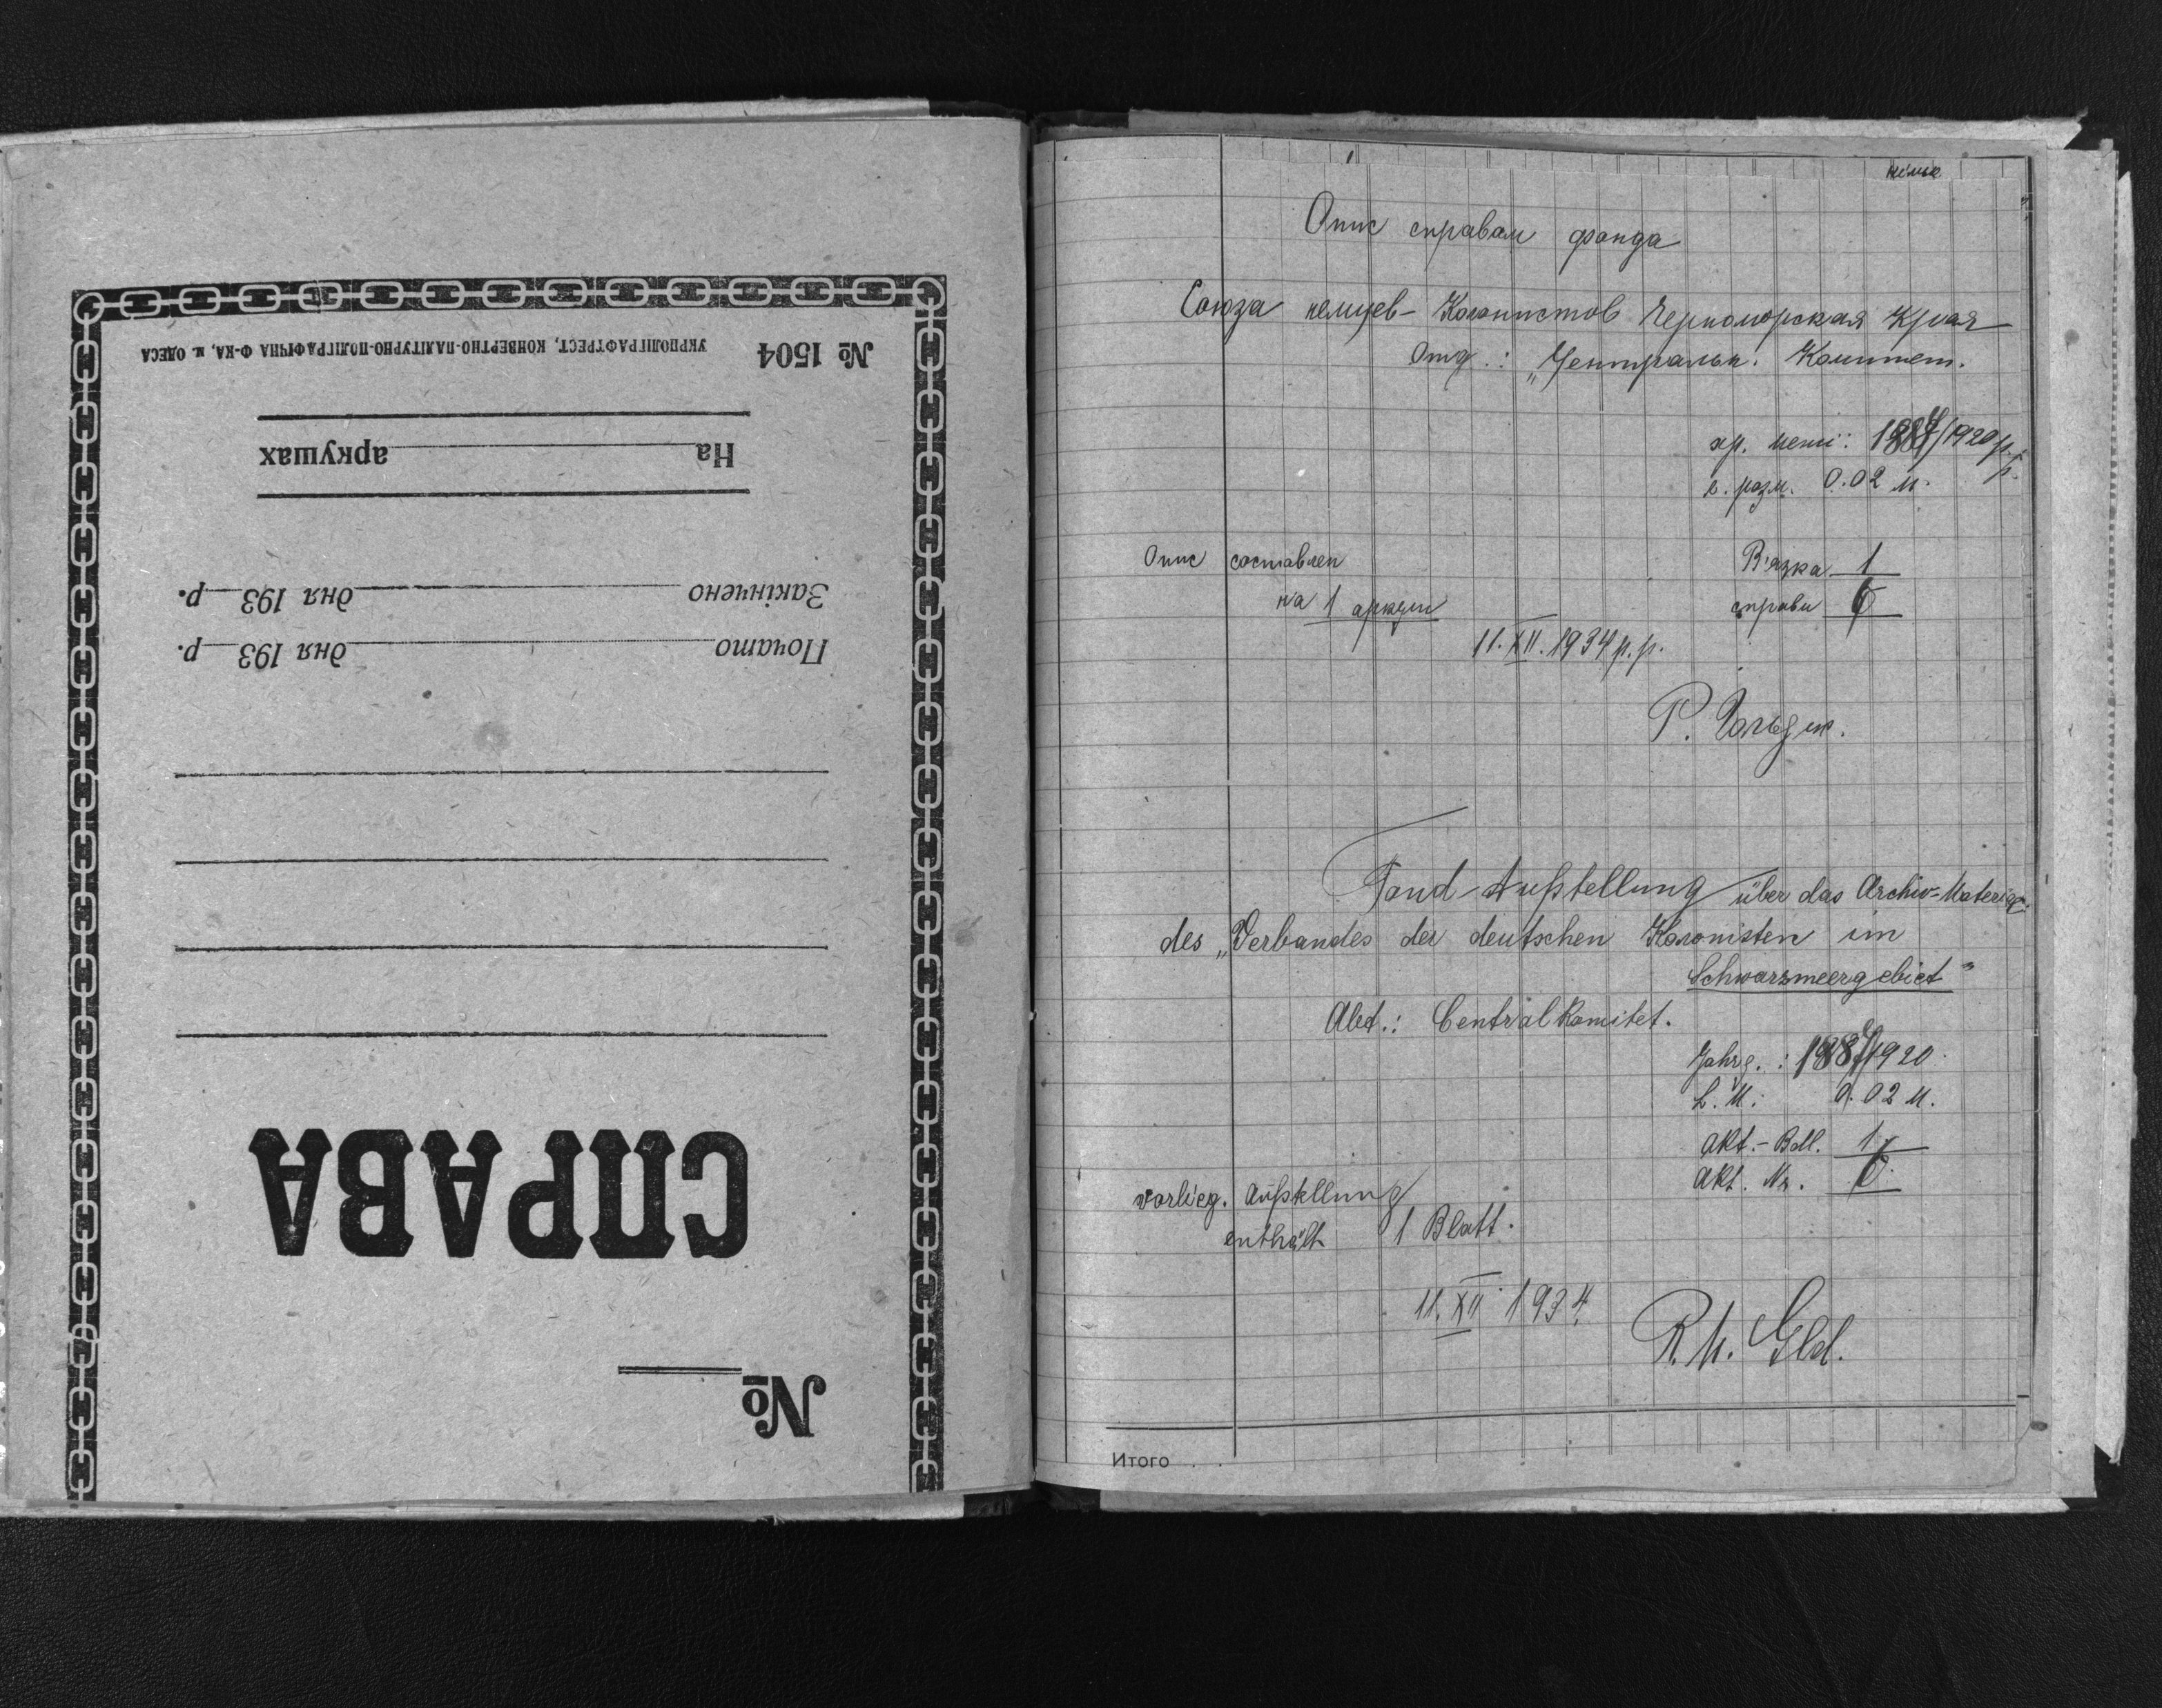 №
СПРАВА
Почато дня 193 р.
Закінчено дня 193 р.
На аркушах
№ 1504 УКРПОЛІГРАФТРЕСТ, КОНВЕРТНО-ПАЛІТУРНО-ПОЛІГРАФІЧНА Ф-КА, м. ОДЕСА
Опис справам фонда
Союза немцев-Колонистов Черноморская Края
Отд.: „Центральн. Комитет.
хр. межі: /1920 р.р.
л. разм. 0.02 м.
Опис составлен
на 1 аркуш
В'язка 1
справи 6
11.XII.1934 р.р.
Р. Гольдш.
Fond-Aufstellung über das Archiv-Material
des „Verbandes der deutschen Kolonisten im
Schwarzmeergebiet"
Abt.: Centralkomitet.
Jahrg.: /1920.
L.M: 0.02 M.
Akt.-Bdl. 1
Akt. Nr. 6.
vorlieg. Aufstellung
enthält 1 Blatt.
11.XII 1934.
R.M. Gld.
Итого . .